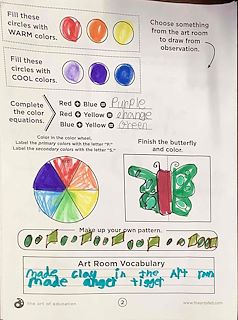 Fill these
circles with
WARM colors.
Choose something
from the art room
to draw from
observation.
Fill these
circles with
COOL colors.
Complete
the color
equations.
Red + Blue = Purple
Red + Yellow = orange
Blue + Yellow = Green
Color in the color wheel.
Label the primary colors with the letter "P."
Label the secondary colors with the letter "S."
Finish the butterfly
and color.
Make up your own pattern.
Art Room Vocabulary
made clay in the Art room
made anger tigger
the art of education
2
www.theartofed.com